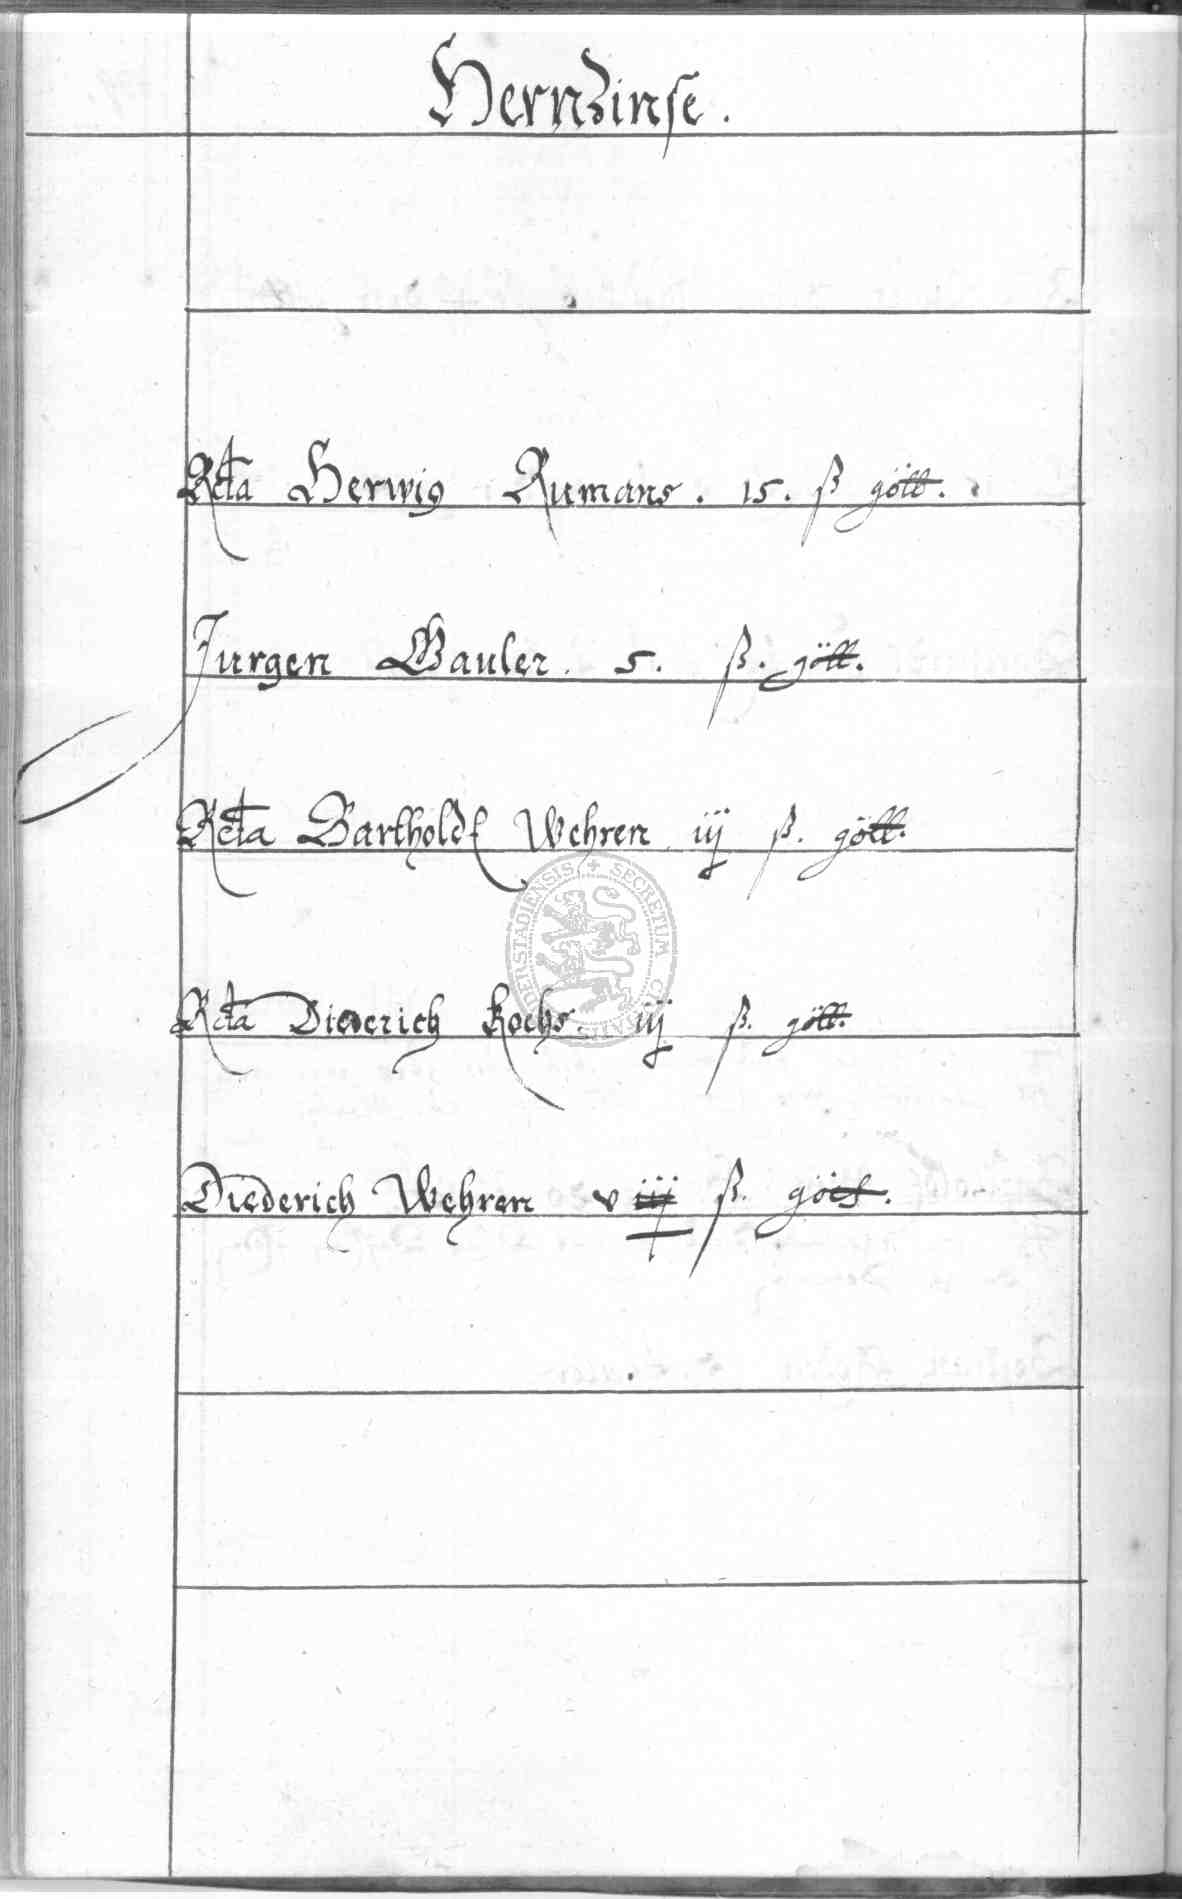 HernZinse.
Rcta Herwig Rumans. 15. ß gött.
Jurgen Gauler. 5. ß. gött.
Rcta Bartholdt Wehren iij ß. gött.
Rcta Diederich Kochs. iij ß. gött.
Diederich Wehren v iij ß. gött.
SECRETUM
DERSTADIENSIS